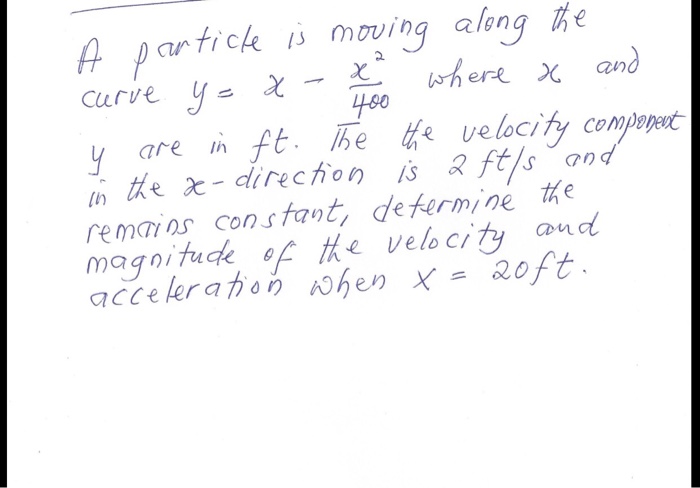 A particle is moving along the
curve y = x - x²/400 where x and
y are in ft. The the velocity component
in the x-direction is 2 ft/s and
remains constant, determine the
magnitude of the velocity and
acceleration when x = 20ft.